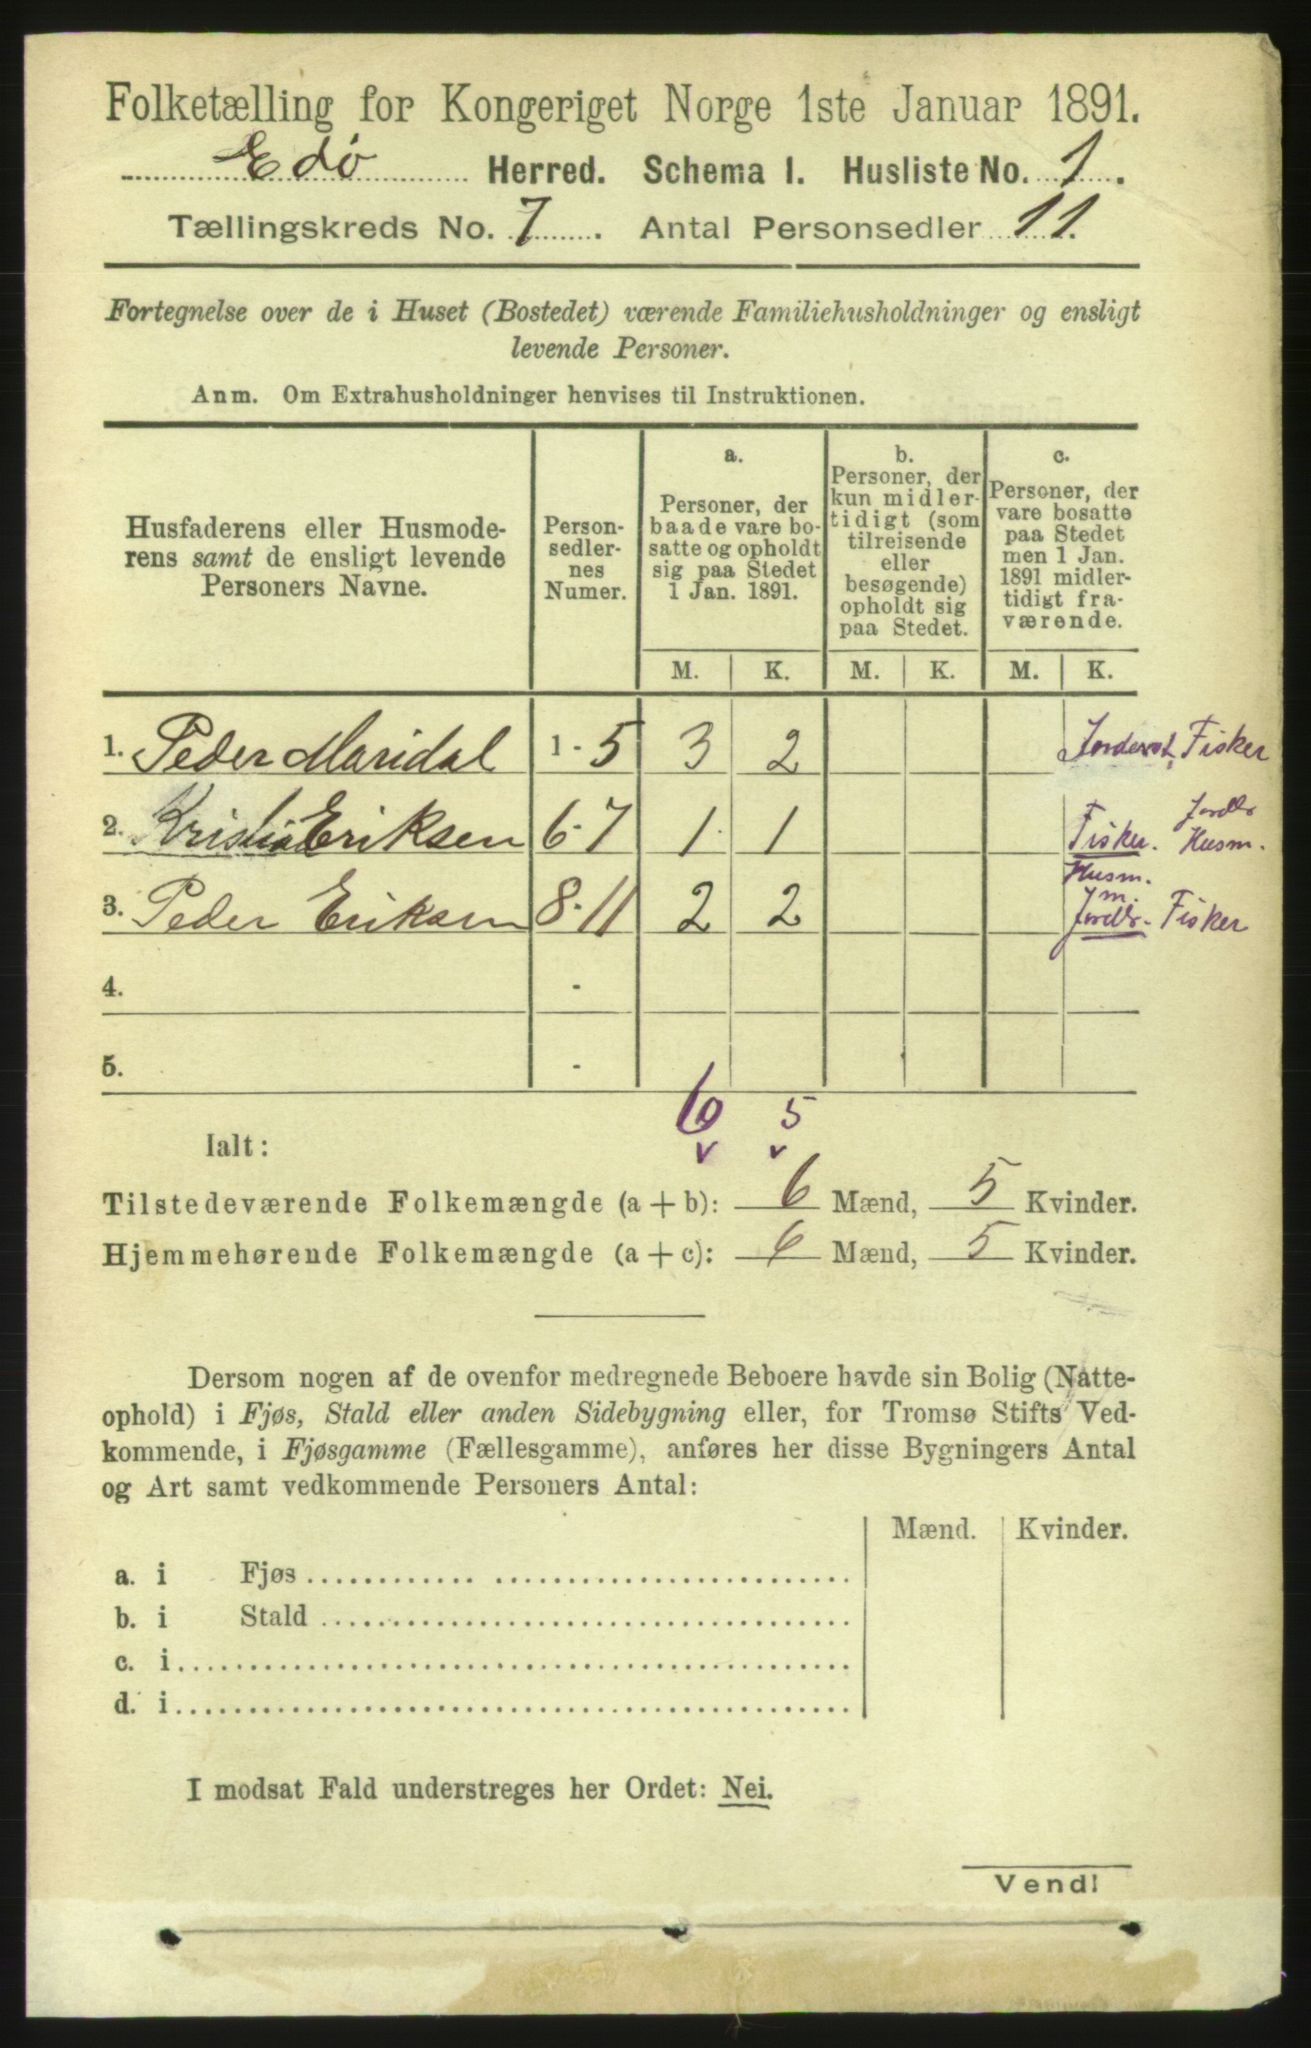 Folketælling for Kongeriget Norge 1ste Januar 1891.
Edø Herred. Schema I. Husliste No. 1.
Tællingskreds No. 7. Antal Personsedler 11.
Fortegnelse over de i Huset (Bostedet) værende Familiehusholdninger og ensligt
levende Personer.
Anm. Om Extrahusholdninger henvises til Instruktionen.
Husfaderens eller Husmode-
rens samt de ensligt levende
Personers Navne.
Person-
sedler-
nes
Numer.
a.
Personer, der
baade vare bo-
satte og opholdt
sig paa Stedet
1 Jan. 1891.
b.
Personer, der
kun midler-
tidigt (som
tilreisende
eller
besøgende)
opholdt sig
paa Stedet.
c.
Personer, der
vare bosatte
paa Stedet
men 1 Jan.
1891 midler-
tidigt fra-
værende.
M. K. M. K. M. K.
1. Peder Maridal 1 - 5 3 2 Fisker
2. Eriksen 6 - 7 1 1 Fisker. Husm.
Husm.
3. Peder Eriksen 8 - 11 2 2 Fisker
4. -
5. -
6 5
Ialt:
Tilstedeværende Folkemængde (a + b): 6 Mænd, 5 Kvinder.
Hjemmehørende Folkemængde (a + c): 6 Mænd, 5 Kvinder.
Dersom nogen af de ovenfor medregnede Beboere havde sin Bolig (Natte-
ophold) i Fjøs, Stald eller anden Sidebygning eller, for Tromsø Stifts Ved-
kommende, i Fjøsgamme (Fællesgamme), anføres her disse Bygningers Antal
og Art samt vedkommende Personers Antal:
Mænd. Kvinder.
a. i Fjøs
b. i Stald
c. i
d. i
I modsat Fald understreges her Ordet: Nei.
Vend!